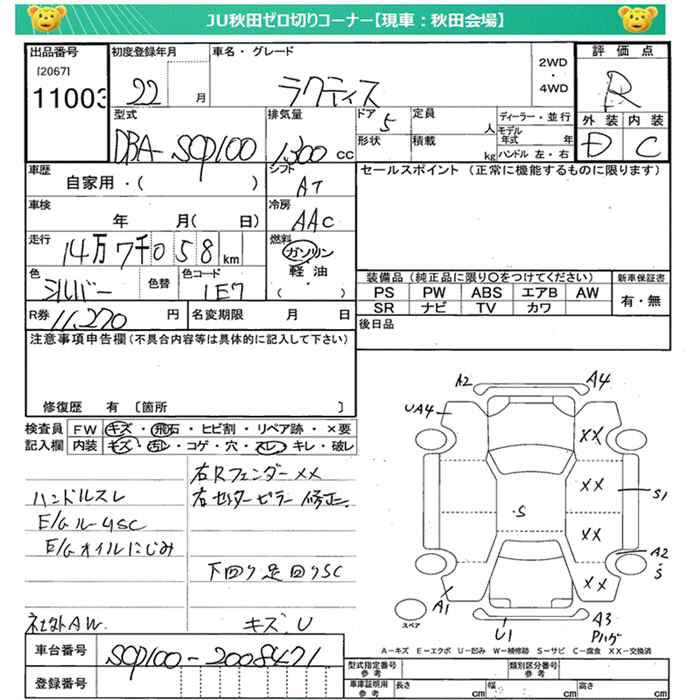 JU秋田ゼロ切りコーナー【現車：秋田会場】
出品番号 初度登録年月 車名・グレード 評価点
[2067]
11003 22 月 ラクティス 2WD・4WD R
型式 排気量 ドア 5 定員 人 ディーラー・並行 外装 内装
DBA-SCP100 1300 cc 形状 積載 kg モデル年式 年 ハンドル 左・右 D C
車歴 シフト セールスポイント（正常に機能するものに限ります）
自家用・( ) AT
車検 冷房
年 月( 日) AAC
走行 燃料
14万7千058km ガソリン・軽油・( )
色 色替 色コード 装備品（純正品に限り○をつけてください） 新車保証書
シルバー 1E7 PS PW ABS エアB AW 有・無
SR ナビ TV カワ
R券 11,270 円 名変期限 月 日 後日品
注意事項申告欄（不具合内容等は具体的に記入して下さい）
修復歴 有 〔箇所 〕
検査員 FW キズ・飛石・ヒビ割・リペア跡・×要
記入欄 内装 キズ・汚レ・コゲ・穴・スレ・キレ・破レ
右Rフェンダー××
ハンドルスレ 右センターピラー修正
E/GルームSC
E/Gオイルにじみ
下回り足回りSC
社外AW. キズ、U
A2 A4
UA4 ××
××
S1
・S
××
A2
・S
××
A1
スペア
U1 A3
Pハゲ
A-キズ E-エクボ U-凹み W-補修跡 S-サビ C-腐食 ××-交換済
車台番号 SCP100-2008471 型式指定番号 参考 類別区分番号 参考
登録番号 車庫証明用 参考 長さ cm 幅 cm 高さ cm